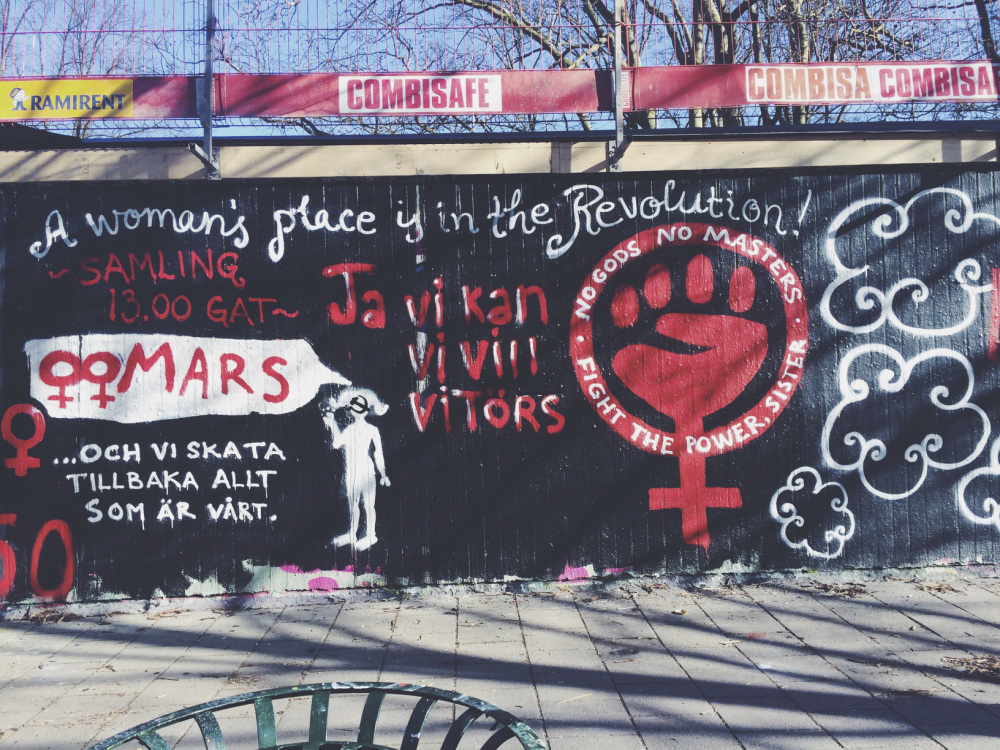 RAMIRENT
COMBISAFE
COMBISA COMBISA
A woman's place is in the Revolution!
~SAMLING
13.00 GAT~
♀♀MARS
...OCH VI SKATA
TILLBAKA ALLT
SOM ÄR VÅRT.
Ja vi kan
vi vill
VITÖRS
NO GODS NO MASTERS
· FIGHT THE POWER, SISTER ·